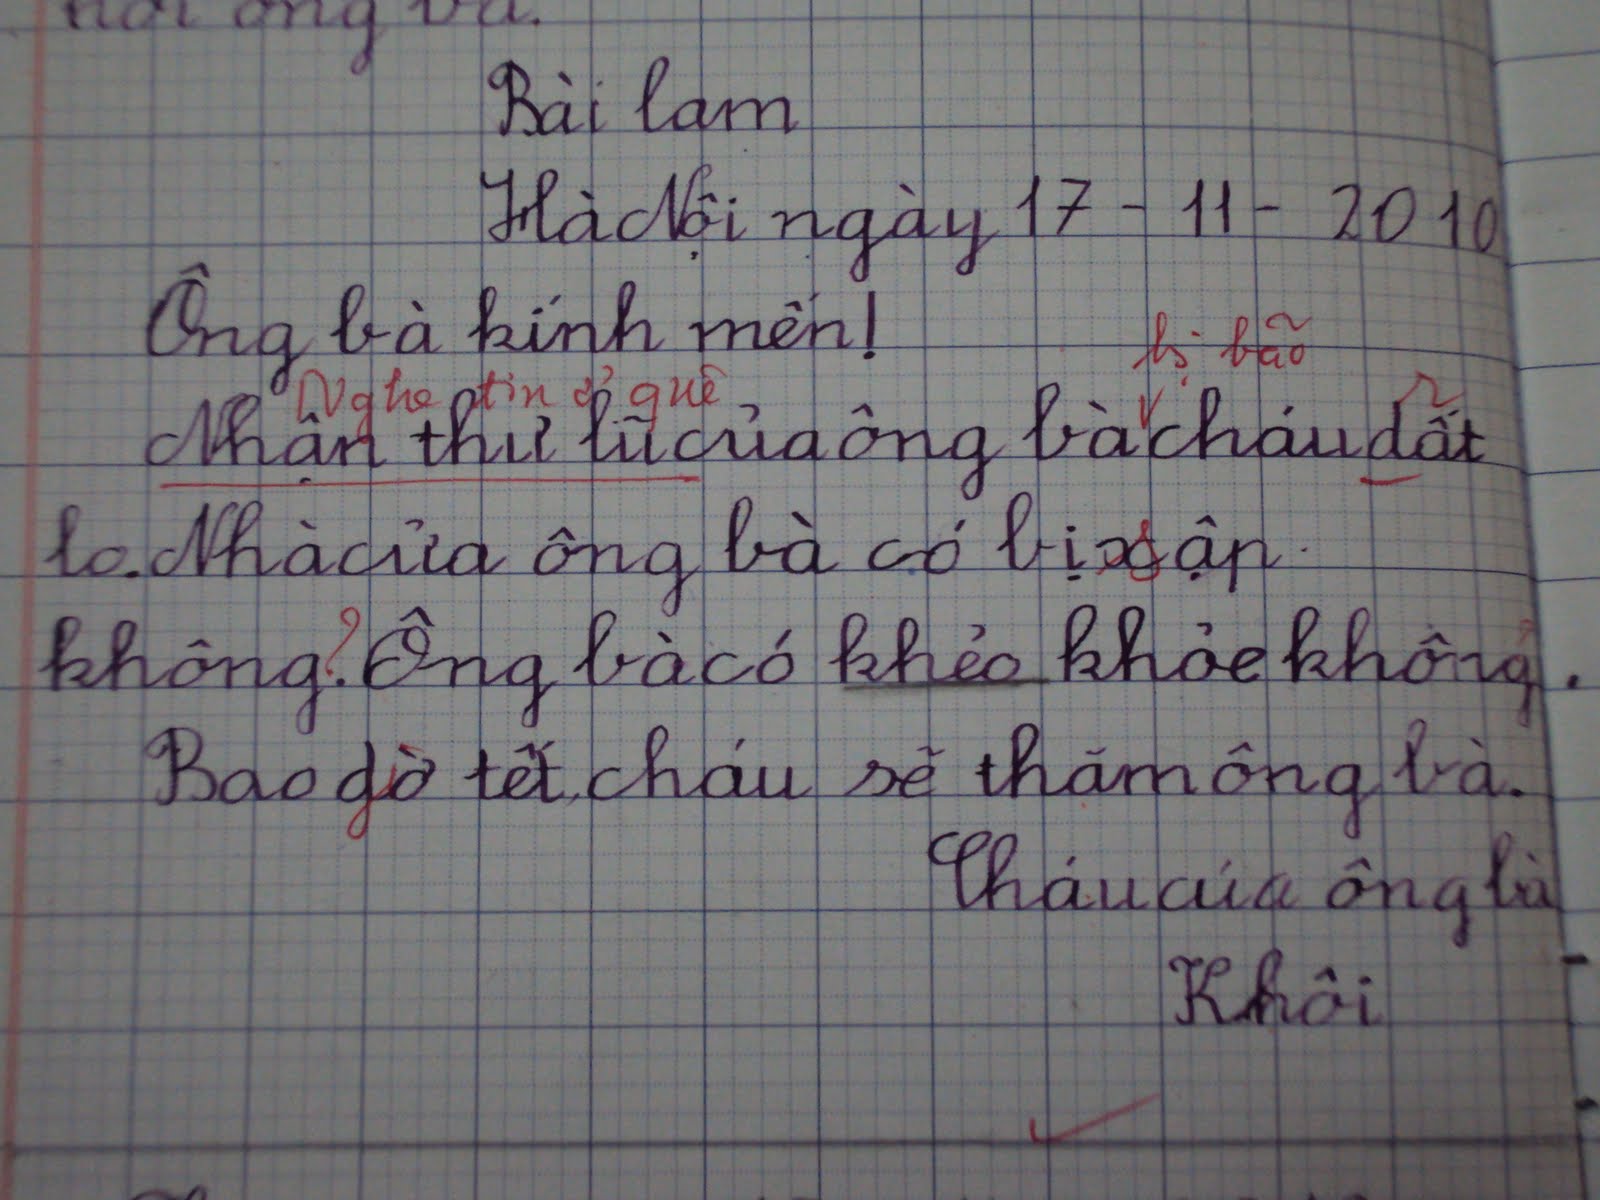 hỏi ông bà.
Bài lam
Hà Nội ngày 17-11-2010
Ông bà kính mến!
bị bão
Nghe tin ở quê
Nhận thư lũ của ông bà cháu dất
lo. Nhà cửa ông bà có bị sập
không?. Ông bà có khẻo khỏe không.
Bao giờ tết, cháu sẽ thăm ông bà.
Cháu của ông bà
Khôi